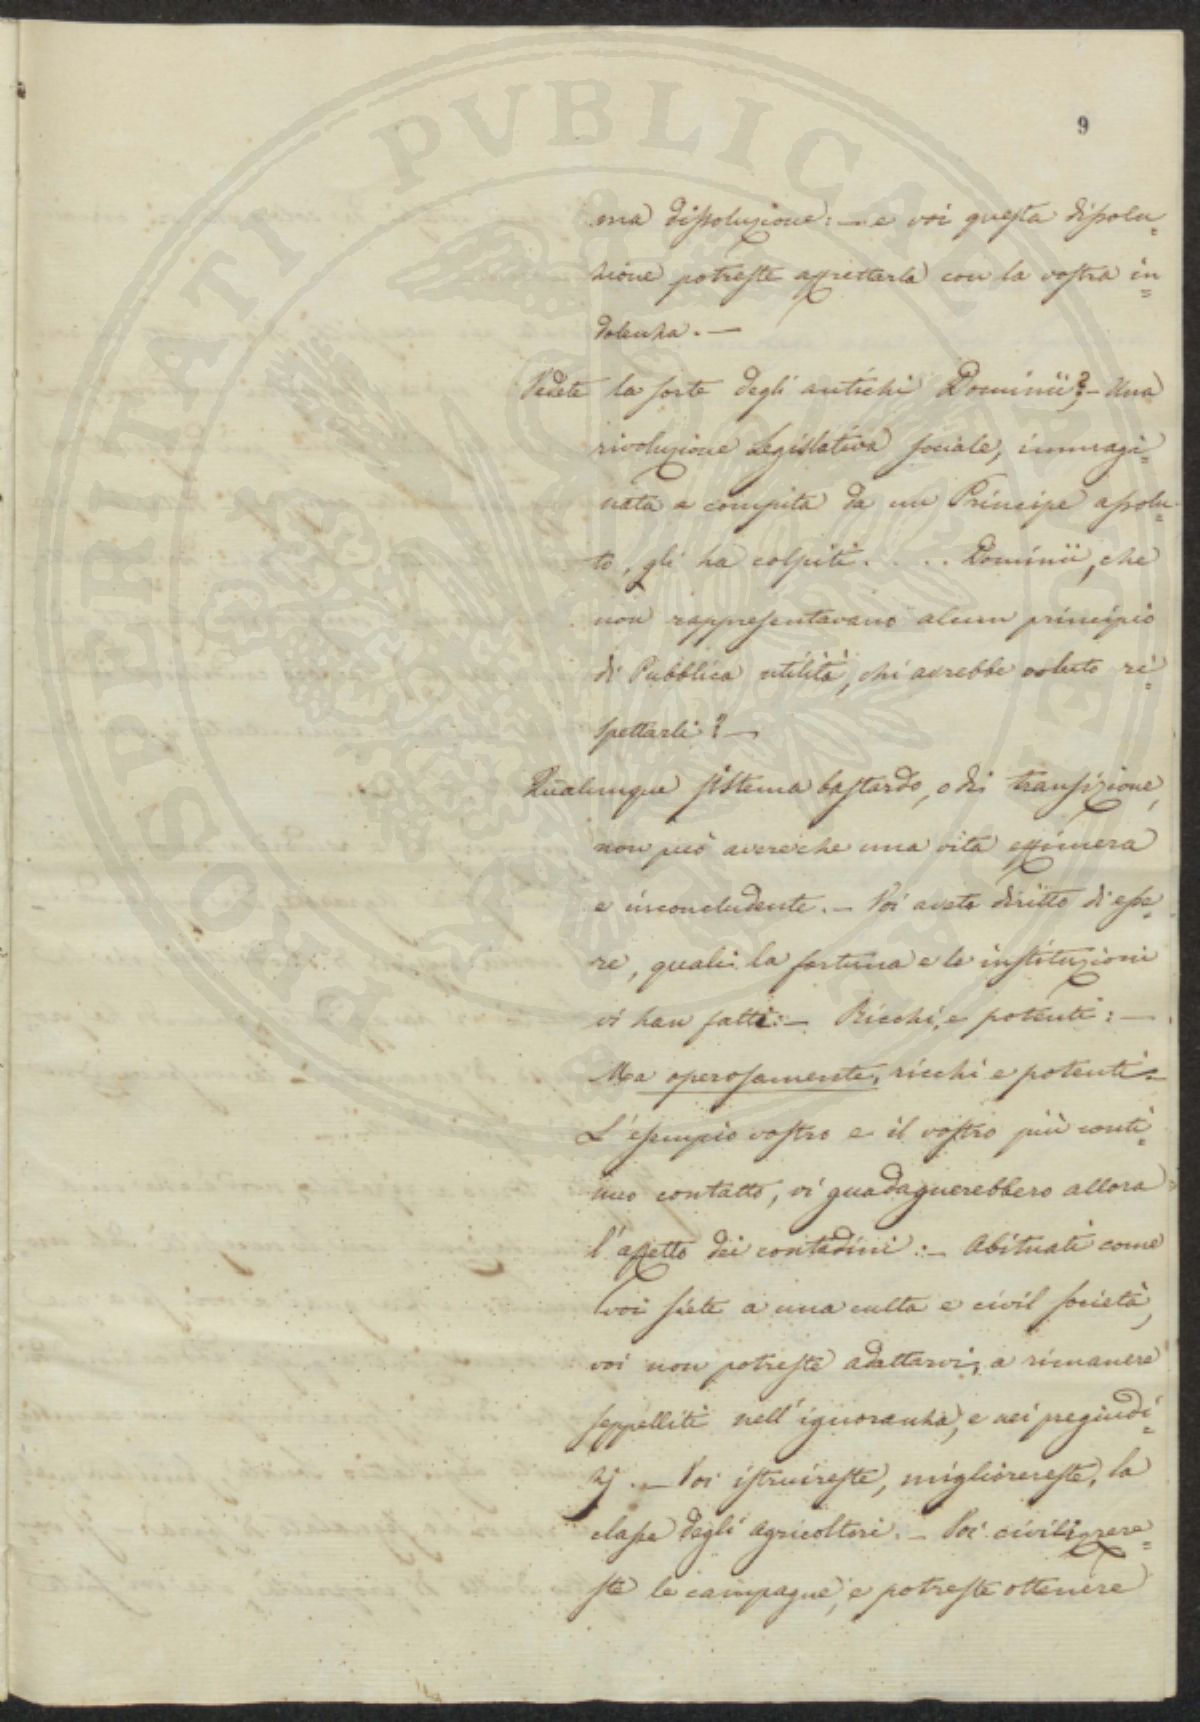 9
PROSPERITATI PUBLICAE
ma dissoluzione: — e voi questa dissolu=
zione potreste affrettarla con la vostra in=
dolenza. —
Vedete la sorte degli antichi Dominii? — Una
rivoluzione Legislativa sociale, immagi=
nata e compita da un Principe assolu=
to, gli ha colpiti. . . . . Dominii, che
non rappresentavano alcun principio
di Pubblica utilità, chi avrebbe voluto ri=
spettarli? —
Qualunque sistema bastardo, o di transizione,
non può avere che una vita effimera
e inconcludente. — Voi avete diritto di esse=
re, quali la fortuna e le instituzioni
vi han fatti: — Ricchi, e potenti: —
Ma operosamente, ricchi e potenti =
L'esempio vostro e il vostro più conti=
nuo contatto, vi guadagnerebbero allora
l'affetto dei contadini: — Abituati come
voi siete a una culta e civil società,
voi non potreste adattarvi, a rimanere
seppelliti nell'ignoranza, e nei pregiudi=
zj. — Voi istruireste, migliorereste, la
classe degli agricoltori. — Voi civilizzere=
ste le campagne, e potreste ottenere